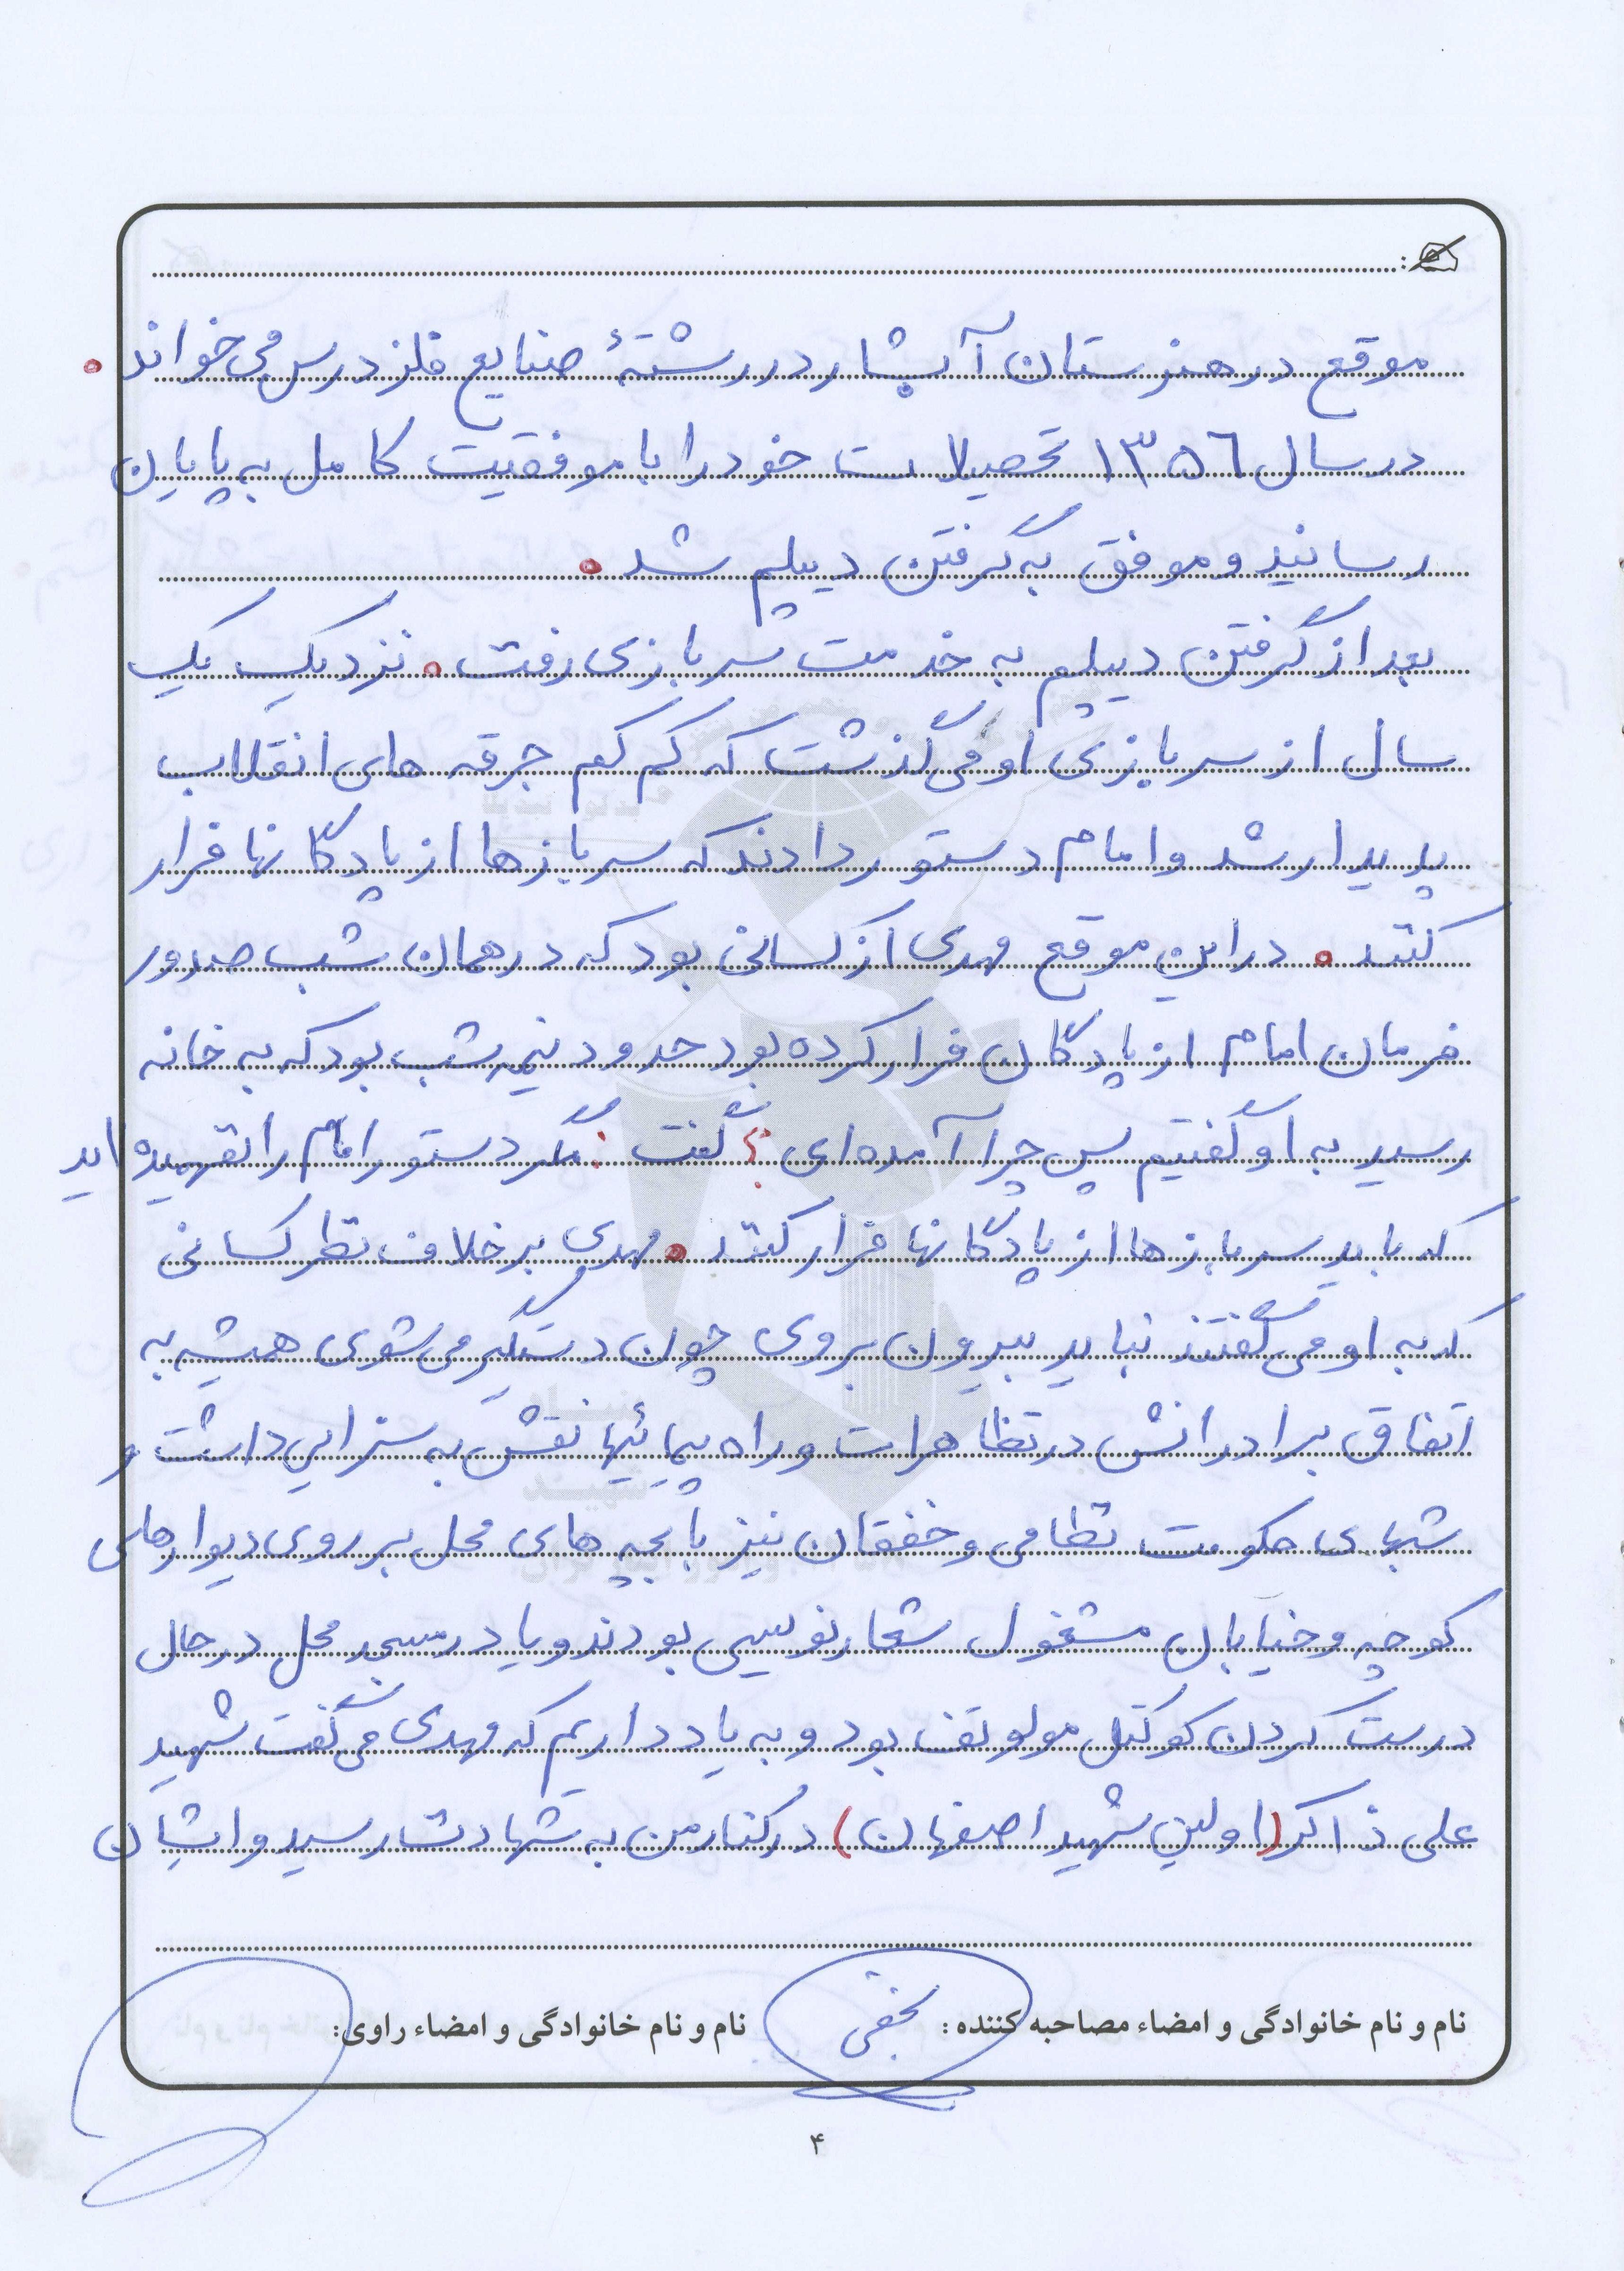 موقع در هنرستان آبشار در رشتهٔ صنایع فلز درس می خواند.
در سال ۱۳۵۶ تحصیلات خود را با موفقیت کامل به پایان
رسانید و موفق به گرفتن دیپلم شد.
بعد از گرفتن دیپلم به خدمت سربازی رفت. نزدیک یک
سال از سربازی او می گذشت که کم کم جرقه های انقلاب
پدیدار شد و امام دستور دادند که سربازها از پادگانها فرار
کنند. در این موقع مهدی از کسانی بود که در همان شب صدور
فرمان امام از پادگان فرار کرده بود حدود نیمه شب بود که به خانه
رسید به او گفتیم پس چرا آمده ای؟ گفت: مگر دستور امام را نفهمیده اید
که باید سربازها از پادگانها فرار کنند. مهدی برخلاف نظر کسانی
که به او می گفتند نباید بیرون بروی چون دستگیر می شوی همیشه به
اتفاق برادرانش در تظاهرات و راه پیمائیها نقش به سزایی داشت و
شبهای حکومت نظامی و خفقان نیز با بچه های محل بر روی دیوارهای
کوچه و خیابان مشغول شعارنویسی بودند و یا در مسجد محل در حال
درست کردن کوکتل مولوتف بود و به یاد داریم که مهدی می گفت شهید
علی ذاکر (اولین شهید اصفهان) در کنار من به شهادت رسید و ایشان
نام و نام خانوادگی و امضاء مصاحبه کننده: نام و نام خانوادگی و امضاء راوی:
۴